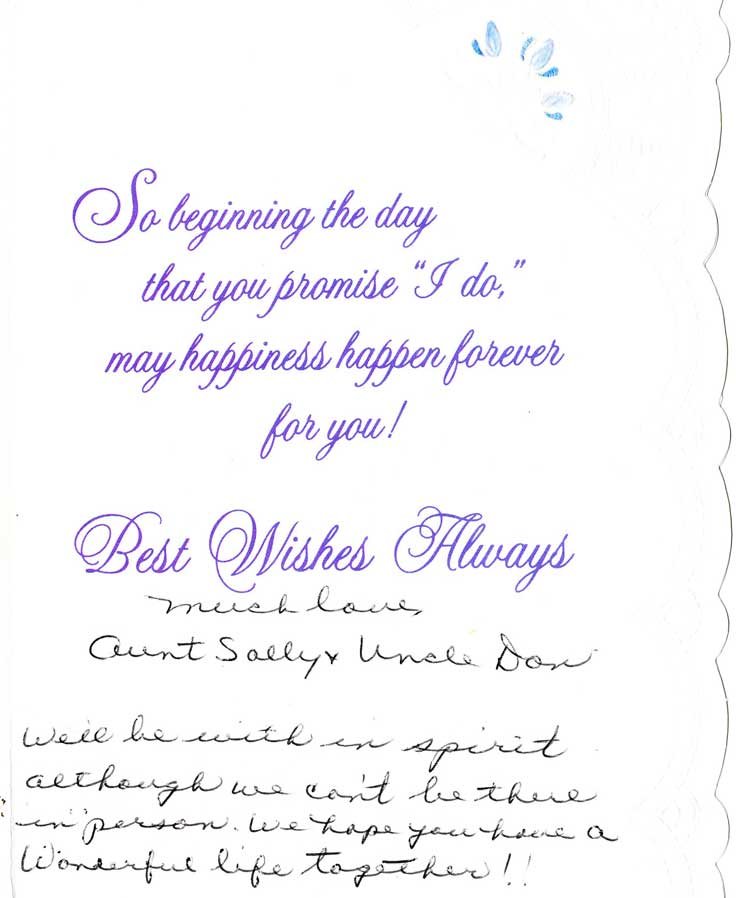 So beginning the day
that you promise "I do,"
may happiness happen forever
for you!
Best Wishes Always
much love,
Aunt Sally & Uncle Don
We'll be with in spirit
although we can't be there
in "person. We hope you have a
Wonderful life together!!